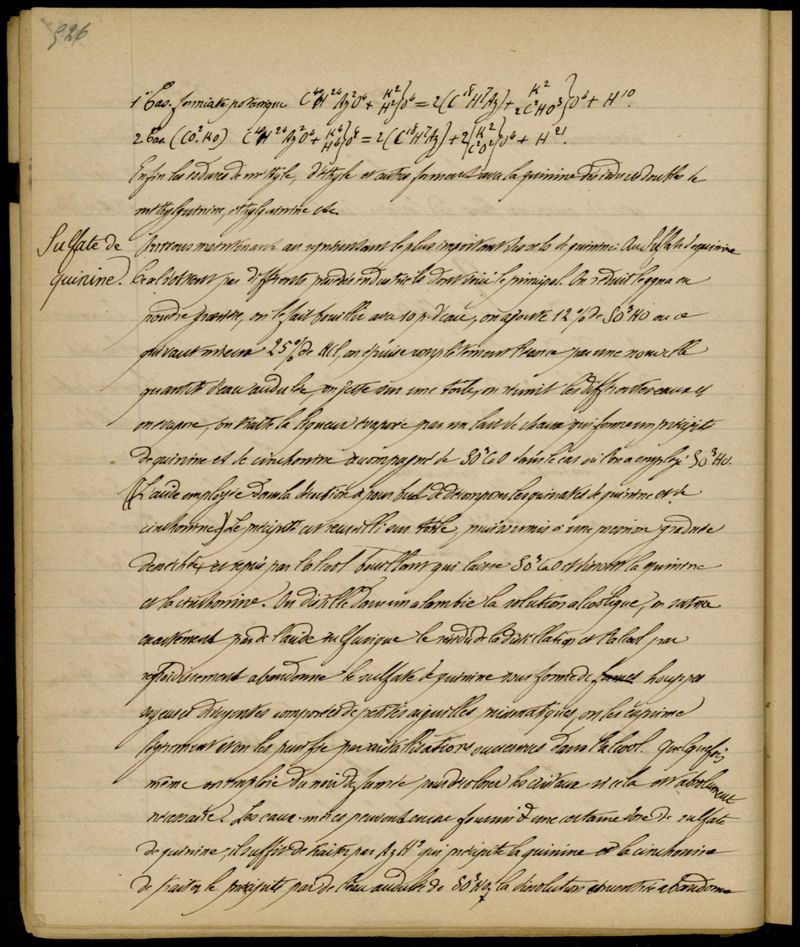 926
1° Cas. formiate potassique C⁴⁰H²⁴Az²O⁴ + K²/H²}O⁴ = 2(C¹⁸H⁷Az) + K²/2C²HO³}O⁴ + H¹⁰.
2 Cas. (CO².KO) C⁴⁰H²⁴Az²O⁴ + K⁴/H⁴}O⁸ = 2(C¹⁸H⁷Az) + 2{K²/C²O²}O⁴ + H²¹.
Enfin les iodures de méthyle, d'éthyle et autres forment avec la quinine des iodures doubles de
méthylquinine, éthylquinine etc.
Sulfate de
quinine.
Arrivons maintenant au représentant le plus important des sels de quinine: Au Sulfate de quinine
Ce sel s'obtient par différents procédés industriels dont voici le principal. On réduit le qqna en
poudre grossière, on le fait bouillir avec 10 p. d'eau, on ajoute 12% de SO³HO ou ce
qui vaut mieux 25% de HCl, on épuise complètement l'écorce par une nouvelle
quantité d'eau acidulée, on passe sur une toile, on réunit les différentes eaux et
on évapore, on traite la liqueur évaporée par un lait de chaux qui forme un précipité
de quinine et de cinchonine accompagné de SO³CaO dans le cas où l'on a employé SO³HO.
(L'acide employé dans la décoction a pour but de décomposer les quinates de quinine et de
cinchonine) Le précipité est recueilli sur toile, puis soumis à une pression graduée
desséché, et repris par l'alcool bouillant qui laisse SO³CaO et dissout la quinine
et la cinchonine. On distille dans un alambic la solution alcoolique, on sature
exactement par de l'acide sulfurique le résidu de la distillation et l'alcool par
refroidissement abandonne le sulfate de quinine sous forme de houppes
soyeuses divergentes composées de petites aiguilles prismatiques, on les exprime
légèrement et on les purifie par cristallisations successives dans l'alcool. Quelquefois
même on emploie du noir de fumée pour décolorer les cristaux si cela est absolument
nécessaire. Les eaux-mères peuvent encore fournir une certaine dose de sulfate
de quinine, il suffit de traiter par AzH³ qui précipite la quinine et la cinchonine
de traiter le précipité par de l'eau acidulée de SO³HO, la dissolution concentrée abandonne